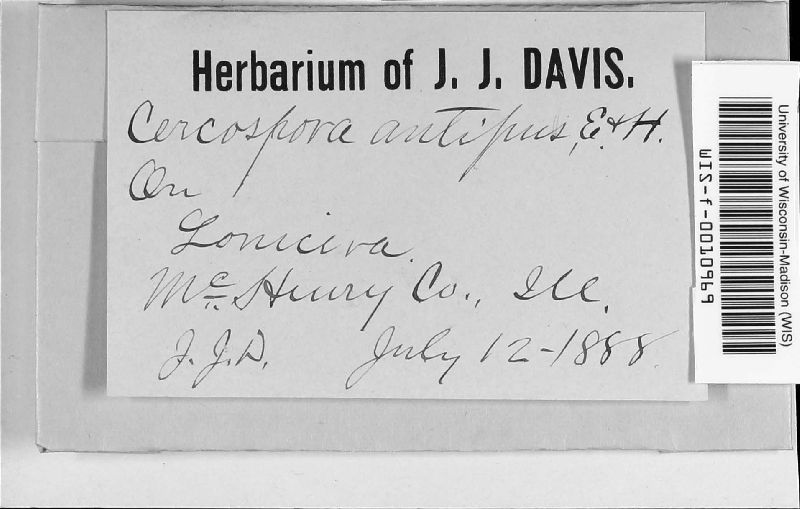 Herbarium of J. J. DAVIS.
Cercospora antipus, E. & H.
On
Lonicera.
Mc. Henry Co., Ill.
J. J. D. July 12-1888.
WIS-f-0010969
University of Wisconsin-Madison (WIS)